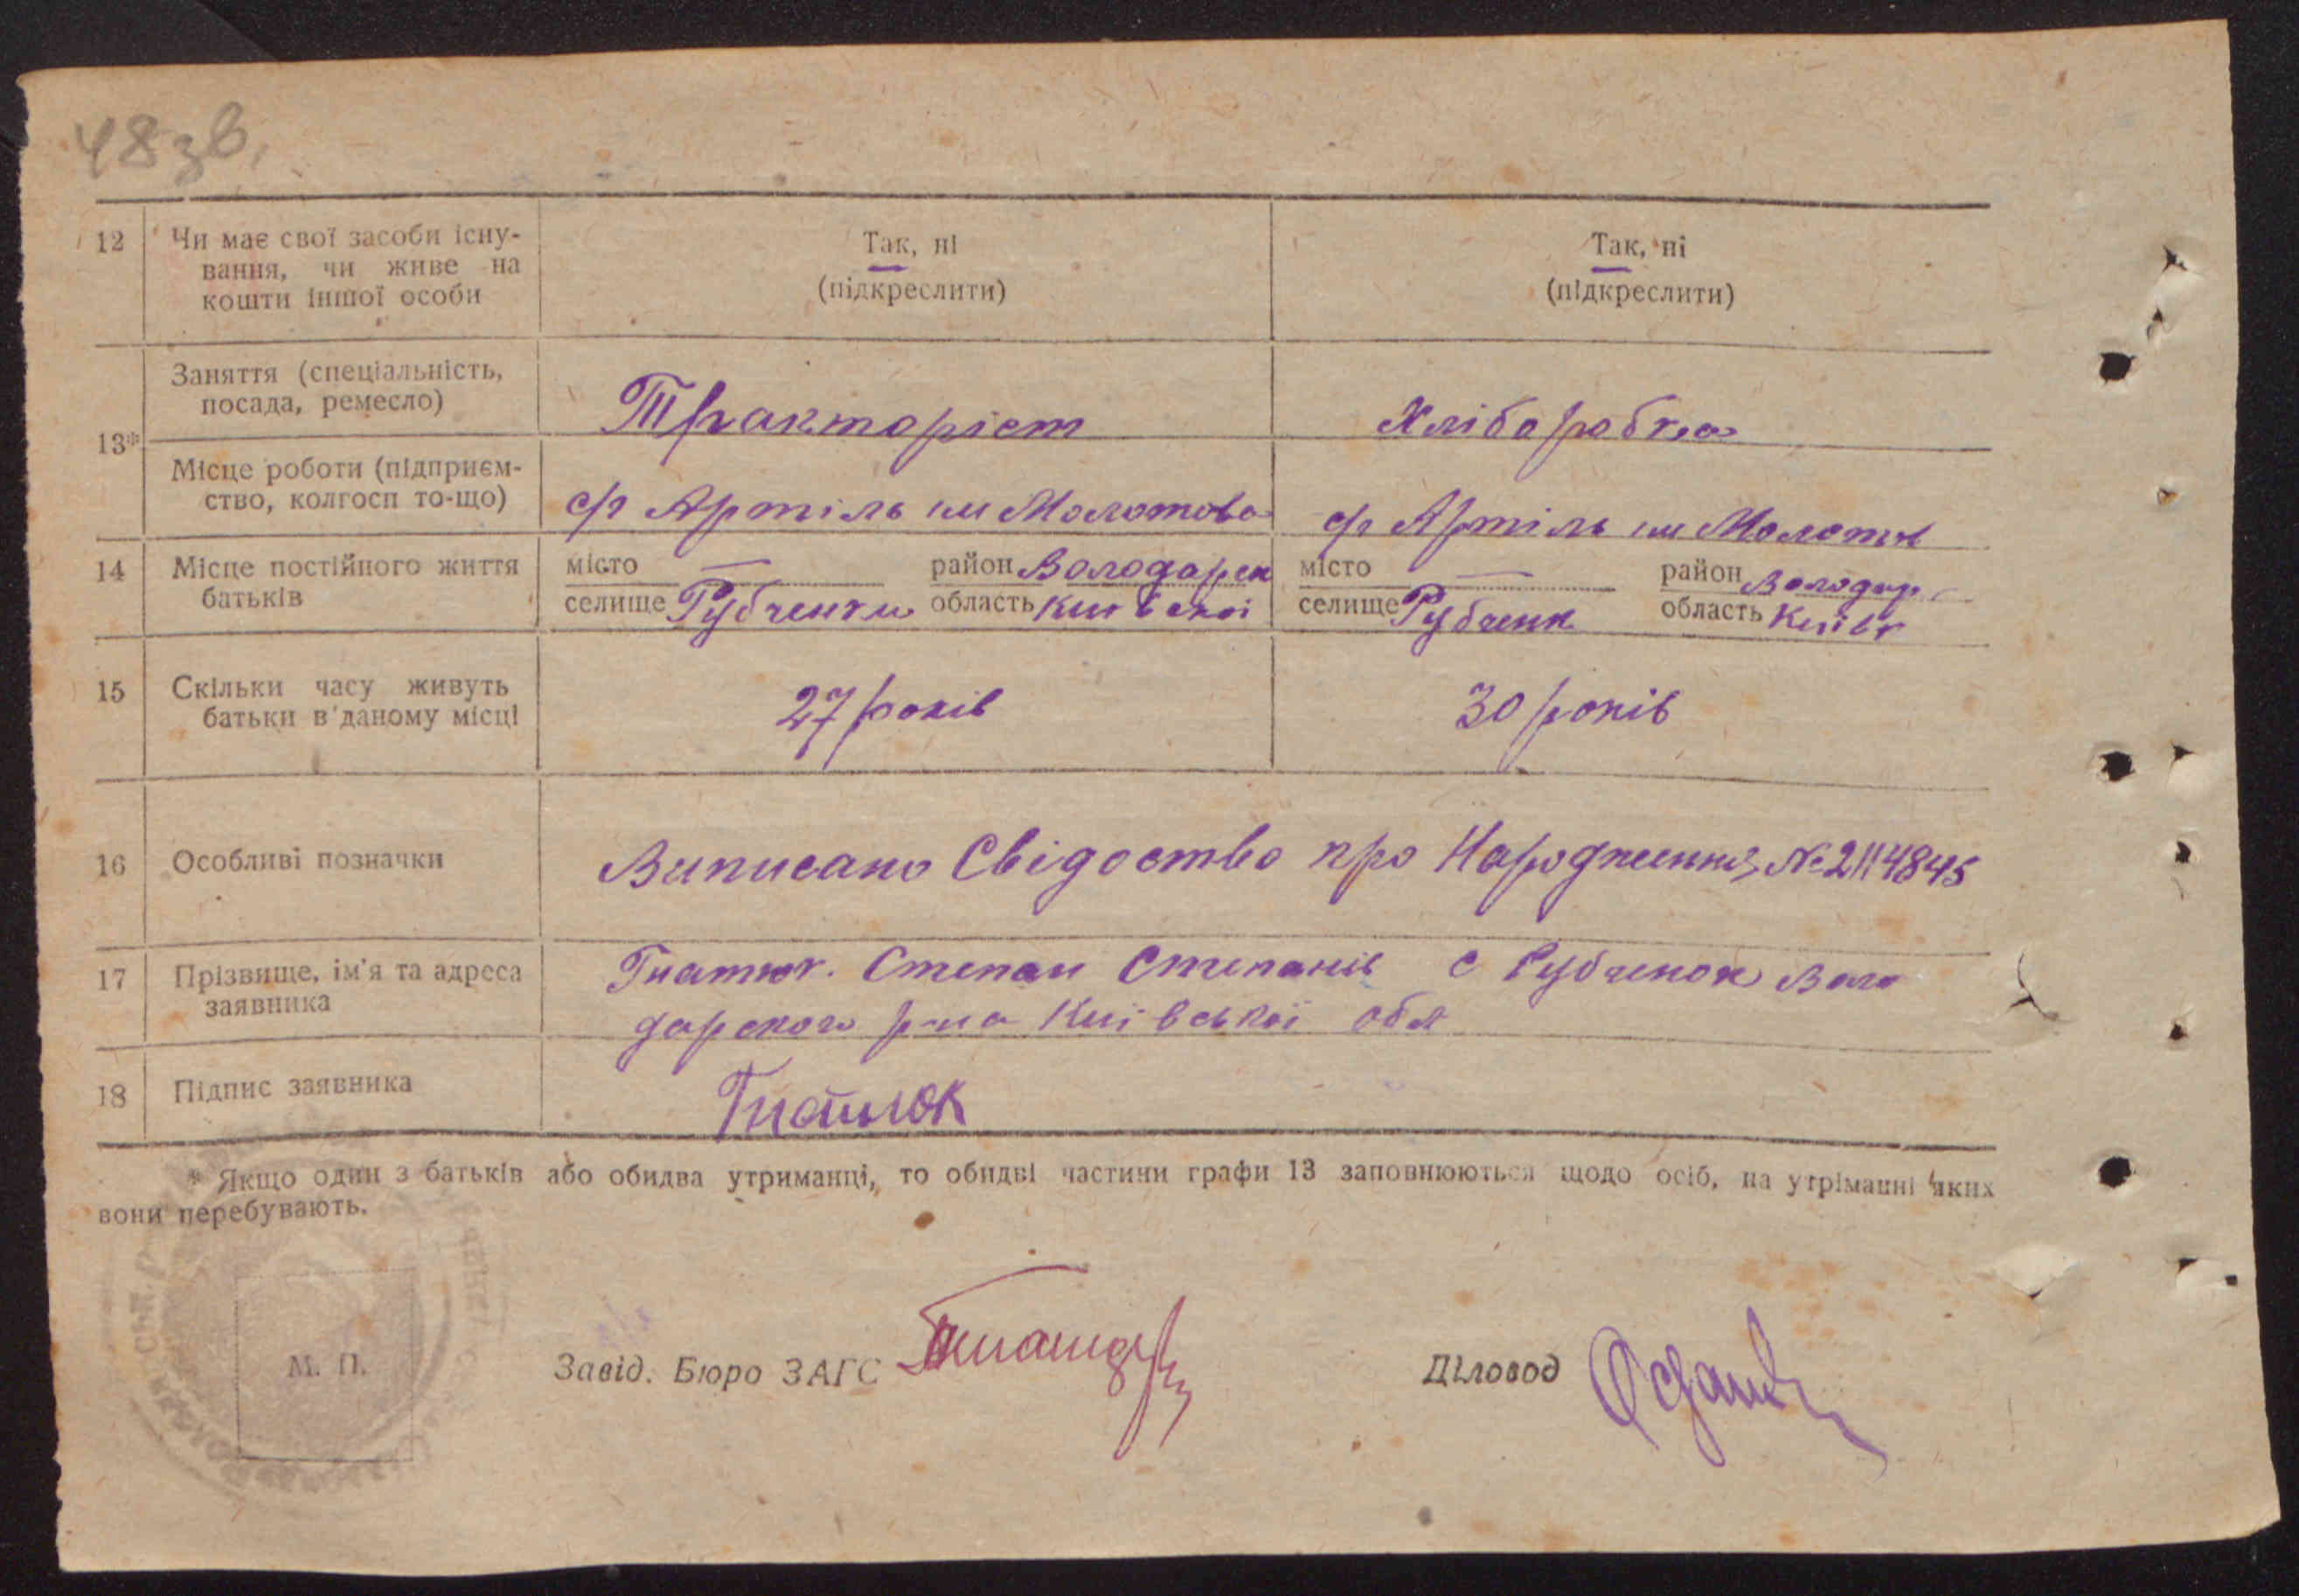 48 зв.
12
Чи має свої засоби існу-
вання, чи живе на
кошти іншої особи
Так, ні
(підкреслити)
Так, ні
(підкреслити)
13*
Заняття (спеціальність,
посада, ремесло)
Тракторіст
Хліборобка
Місце роботи (підприєм-
ство, колгосп то-що)
с/г Артіль им Молотова
с/г Артіль им Молотов
14
Місце постійного життя
батьків
місто — район Володарск
селище Рубченки область Київскої
місто — район Володар
селище Рубченк область Київк
15
Скільки часу живуть
батьки в даному місці
27 років
30 років
16
Особливі позначки
Виписано Свідоство про Народження № 2114845
17
Прізвище, ім'я та адреса
заявника
Гнатюк. Степан Степанів с Рубченок Воло
дарского р-на Київської обл
18
Підпис заявника
Гнатюк
* Якщо один з батьків або обидва утриманці, то обидві частини графи 13 заповнюються щодо осіб, на утріманні яких
вони перебувають.
М. П.
Завід. Бюро ЗАГС
Діловод